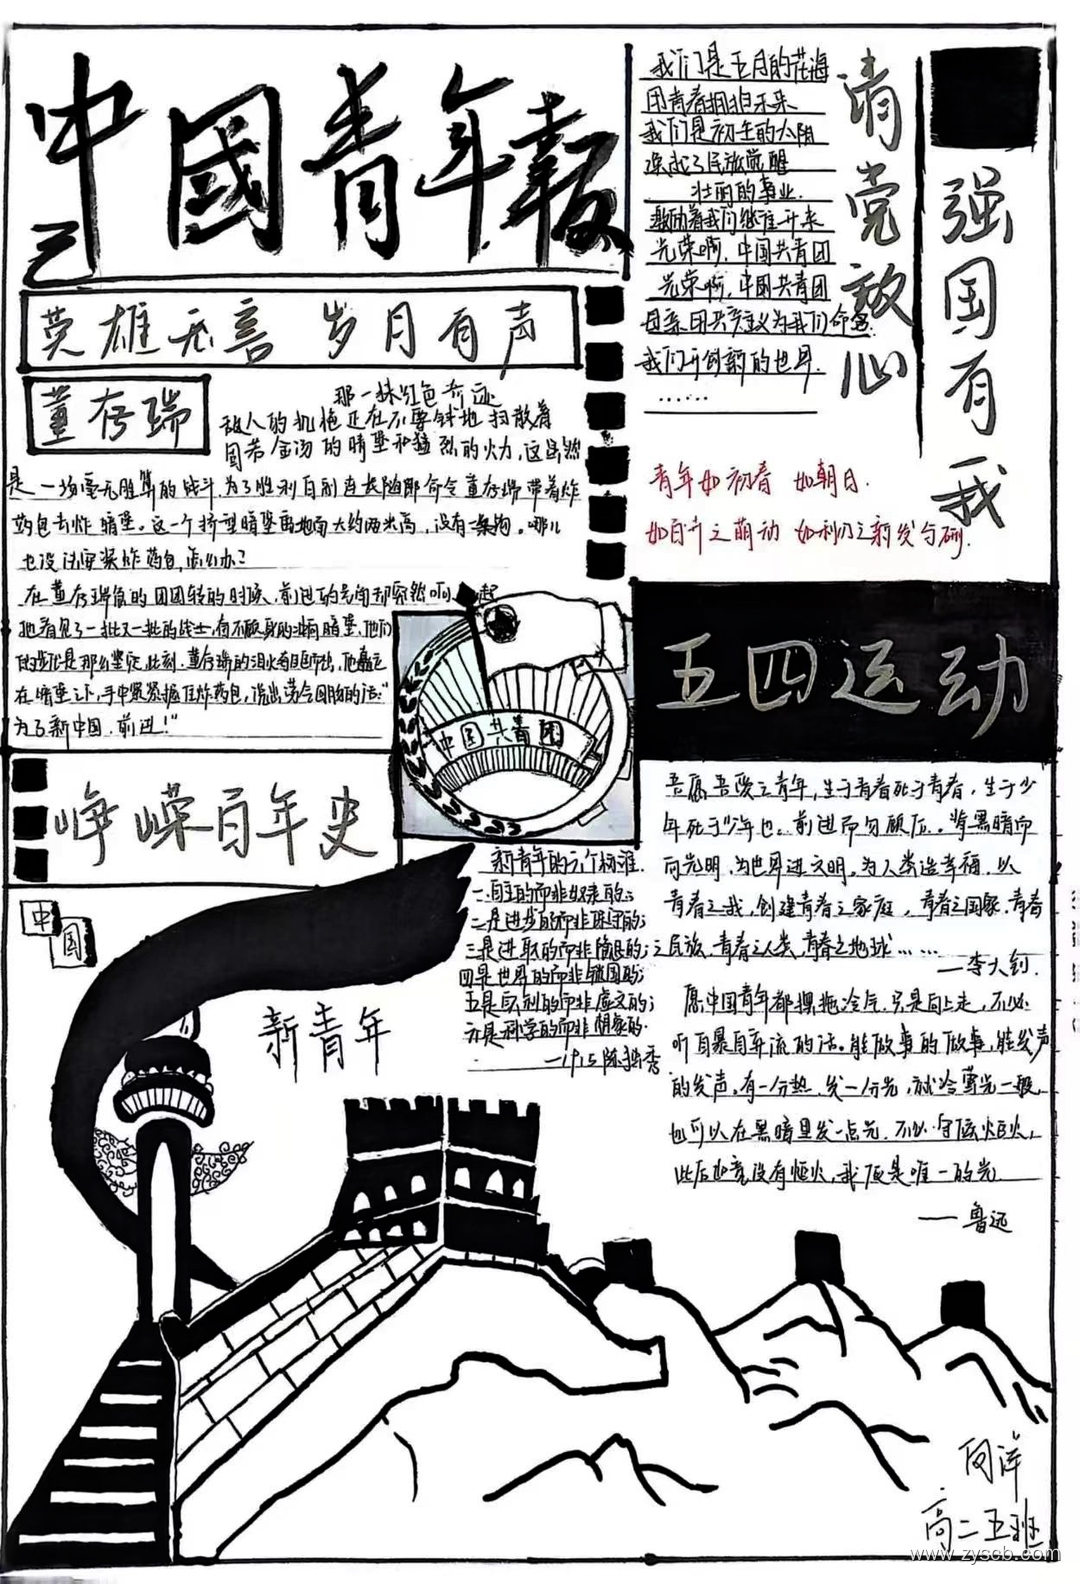 中國青年報
英雄无言 岁月有声
董存瑞
那一抹红色奇迹
敌人的机枪正在不要钱地扫散着
固若金汤的暗堡和猛烈的火力,这虽然
是一场毫无胜算的战斗.为了胜利
命令董存瑞带着炸
药包去炸暗堡。这一个桥型暗堡离地面大约两米高,没有
哪儿
也没法安装炸药包,怎么办?
在董存瑞急的团团转的时候,前
他看见了一批又一批的战士,
暗堡,他们
的步伐是那么坚定,此刻,董存瑞的泪水
在暗堡之下,手中紧紧握住炸药包,说出
为了新中国,前进!"
峥嵘百年史
中国
新青年
我们是五月的花海
用青春拥抱未来
我们是初生的太阳
唤起了民族觉醒
壮丽的事业.
激励着我们继往开来
光荣啊,中国共青团
光荣啊,中国共青团
母亲用共产主义为我们命名
我们开创新的世界.
……
请党放心
强国有我
青年如初春 如朝日.
如百卉之萌动 如利刃之新发于硎.
中国共青团
五四运动
吾愿吾亲爱之青年,生于青春死于青春,生于少
年死于少年也。前进而勿顾后。背黑暗而
向光明,为世界进文明,为人类造幸福,以
青春之我,创建青春之家庭,青春之国家,青春
之民族,青春之人类,青春之地球……
—李大钊.
愿中国青年都摆拖冷气,只是向上走,不必
听自暴自弃流的话。能做事的做事,能发声
的发声。有一分热,发一分光,就令萤光一般,
也可以在黑暗里发一点光,不必等候炬火,
此后如竟没有炬火,我便是唯一的光
——鲁迅
新青年的六个标准.
一.自主的而非奴隶的;
二是进步的而非保守的;
三是进取的而非隐退的;
四是世界的而非锁国的;
五是实利的而非虚文的;
六是科学的而非想象的.
—1915陈独秀
高二五班
www.zyscb.com